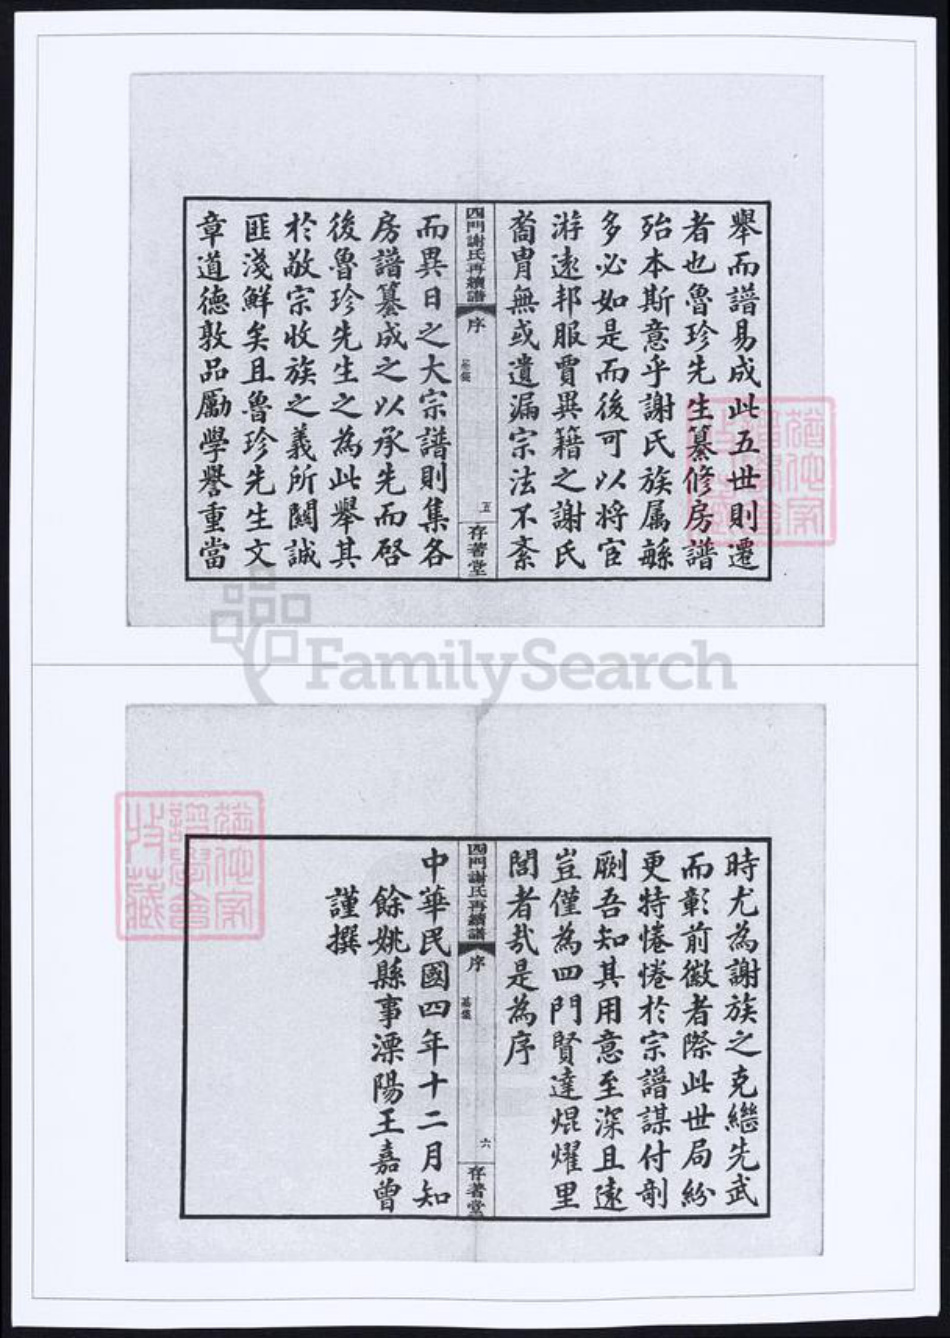 舉而譜易成此五世則遷
者也魯珍先生纂修房譜
殆本斯意乎謝氏族属緐
多必如是而後可以將宦
游遠邦服賈異籍之謝氏
裔胄無或遺漏宗法不紊
四門謝氏再續譜
序
五
存著堂
而異日之大宗譜則集各
房譜纂成之以承先而啓
後魯珍先生之為此舉其
於敬宗收族之義所關誠
匪淺鮮矣且魯珍先生文
章道德敦品勵學譽重當
FamilySearch
時尤為謝族之克繼先武
而彰前徽者際此世局紛
更特惓惓於宗譜謀付剞
劂吾知其用意至深且遠
豈僅為四門賢達焜燿里
閭者哉是為序
四門謝氏再續譜
序
六
存著堂
中華民國四年十二月知
餘姚縣事溧陽王嘉曾
謹撰